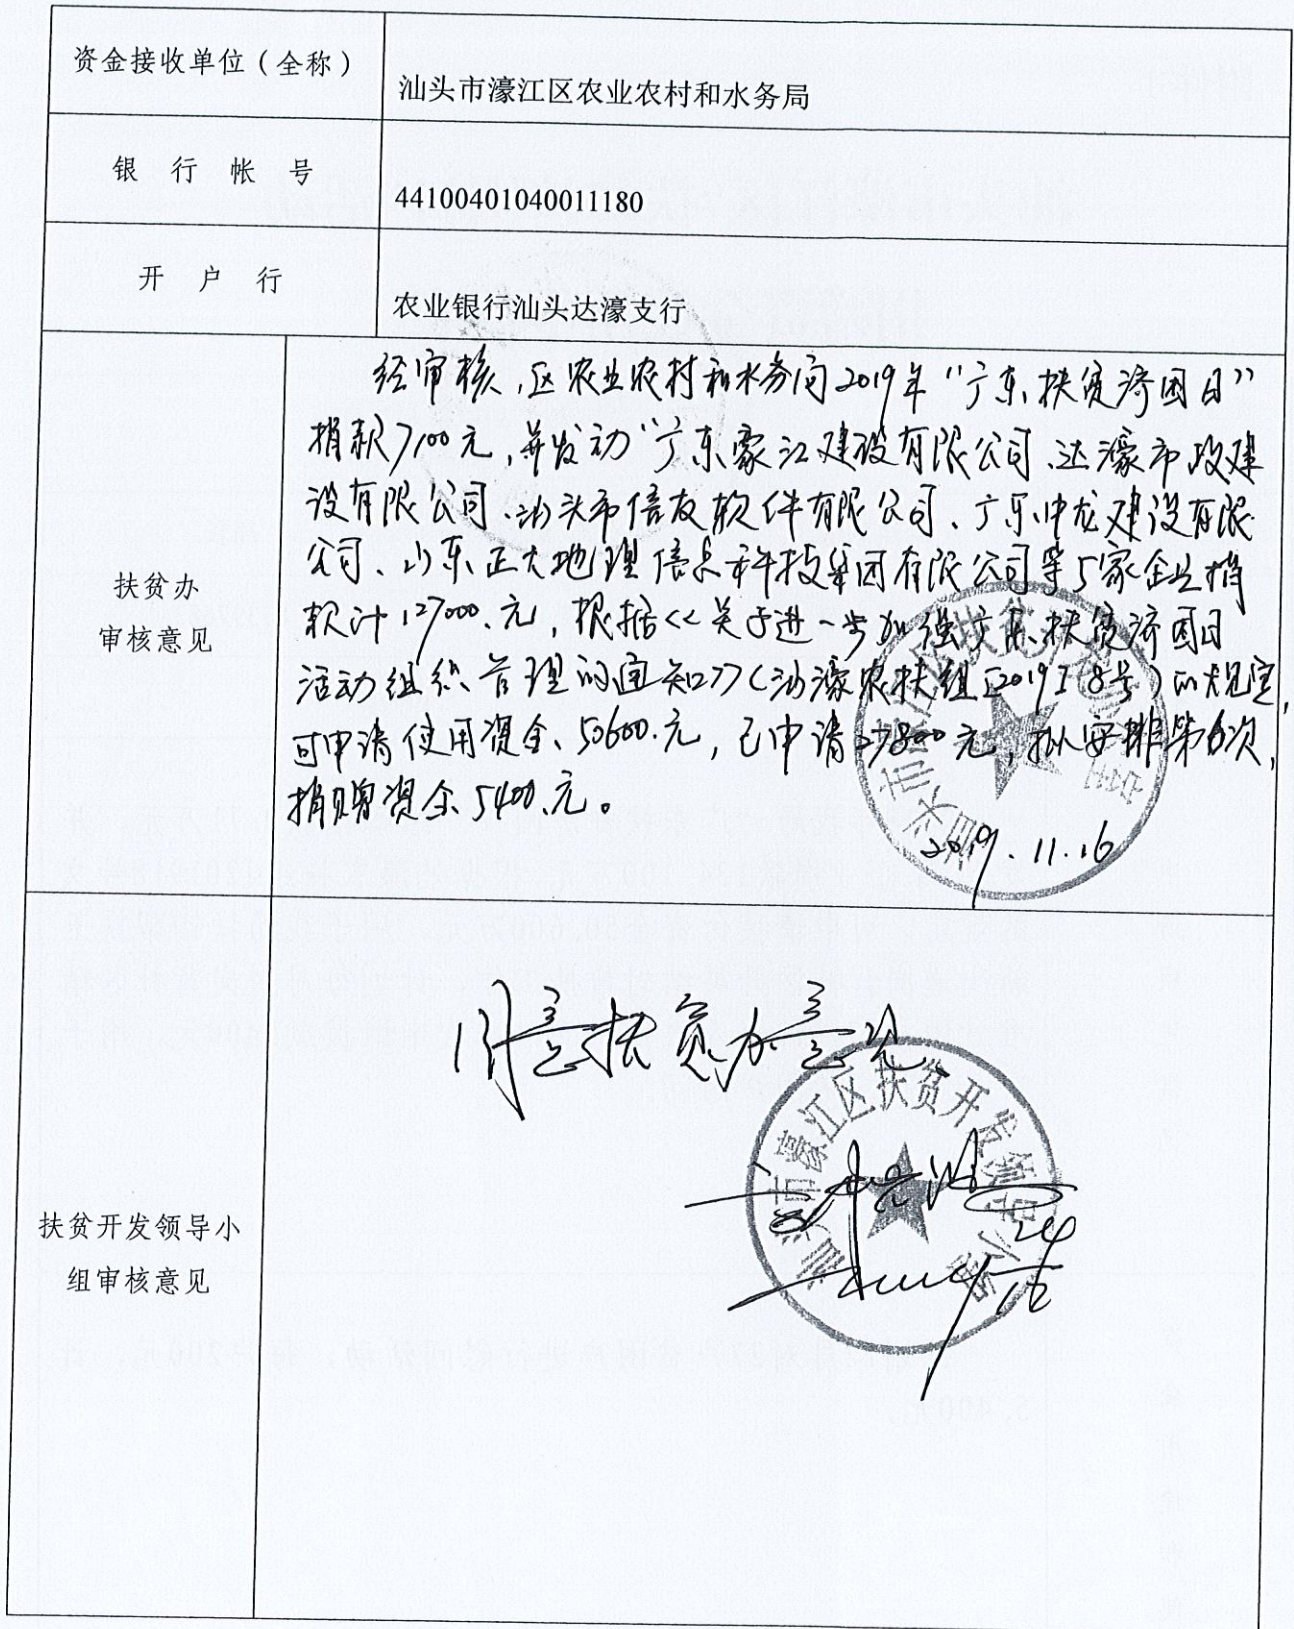 资金接收单位（全称）
汕头市濠江区农业农村和水务局
银行帐号
44100401040011180
开户行
农业银行汕头达濠支行
扶贫办
审核意见
经审核，区农业农村和水务局2019年“广东扶贫济困日”
捐款7100元，并发动“广东濠江建设有限公司、达濠市政建
设有限公司、汕头市信友软件有限公司、广东中龙建设有限
公司、山东正大地理信息科技集团有限公司等5家企业捐
款计127000元，根据《关于进一步加强广东扶贫济困日
活动组织管理的通知》（汕濠农扶组[2019]8号）的规定，
可申请使用资金50600元，已申请27800元，拟安排第6次
捐赠资金5400元。
2019.11.16
扶贫开发领导小
组审核意见
同意扶贫办意见
汕头市濠江区扶贫开发领导小组